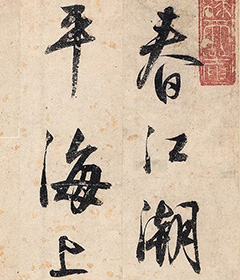 春江潮
平海上